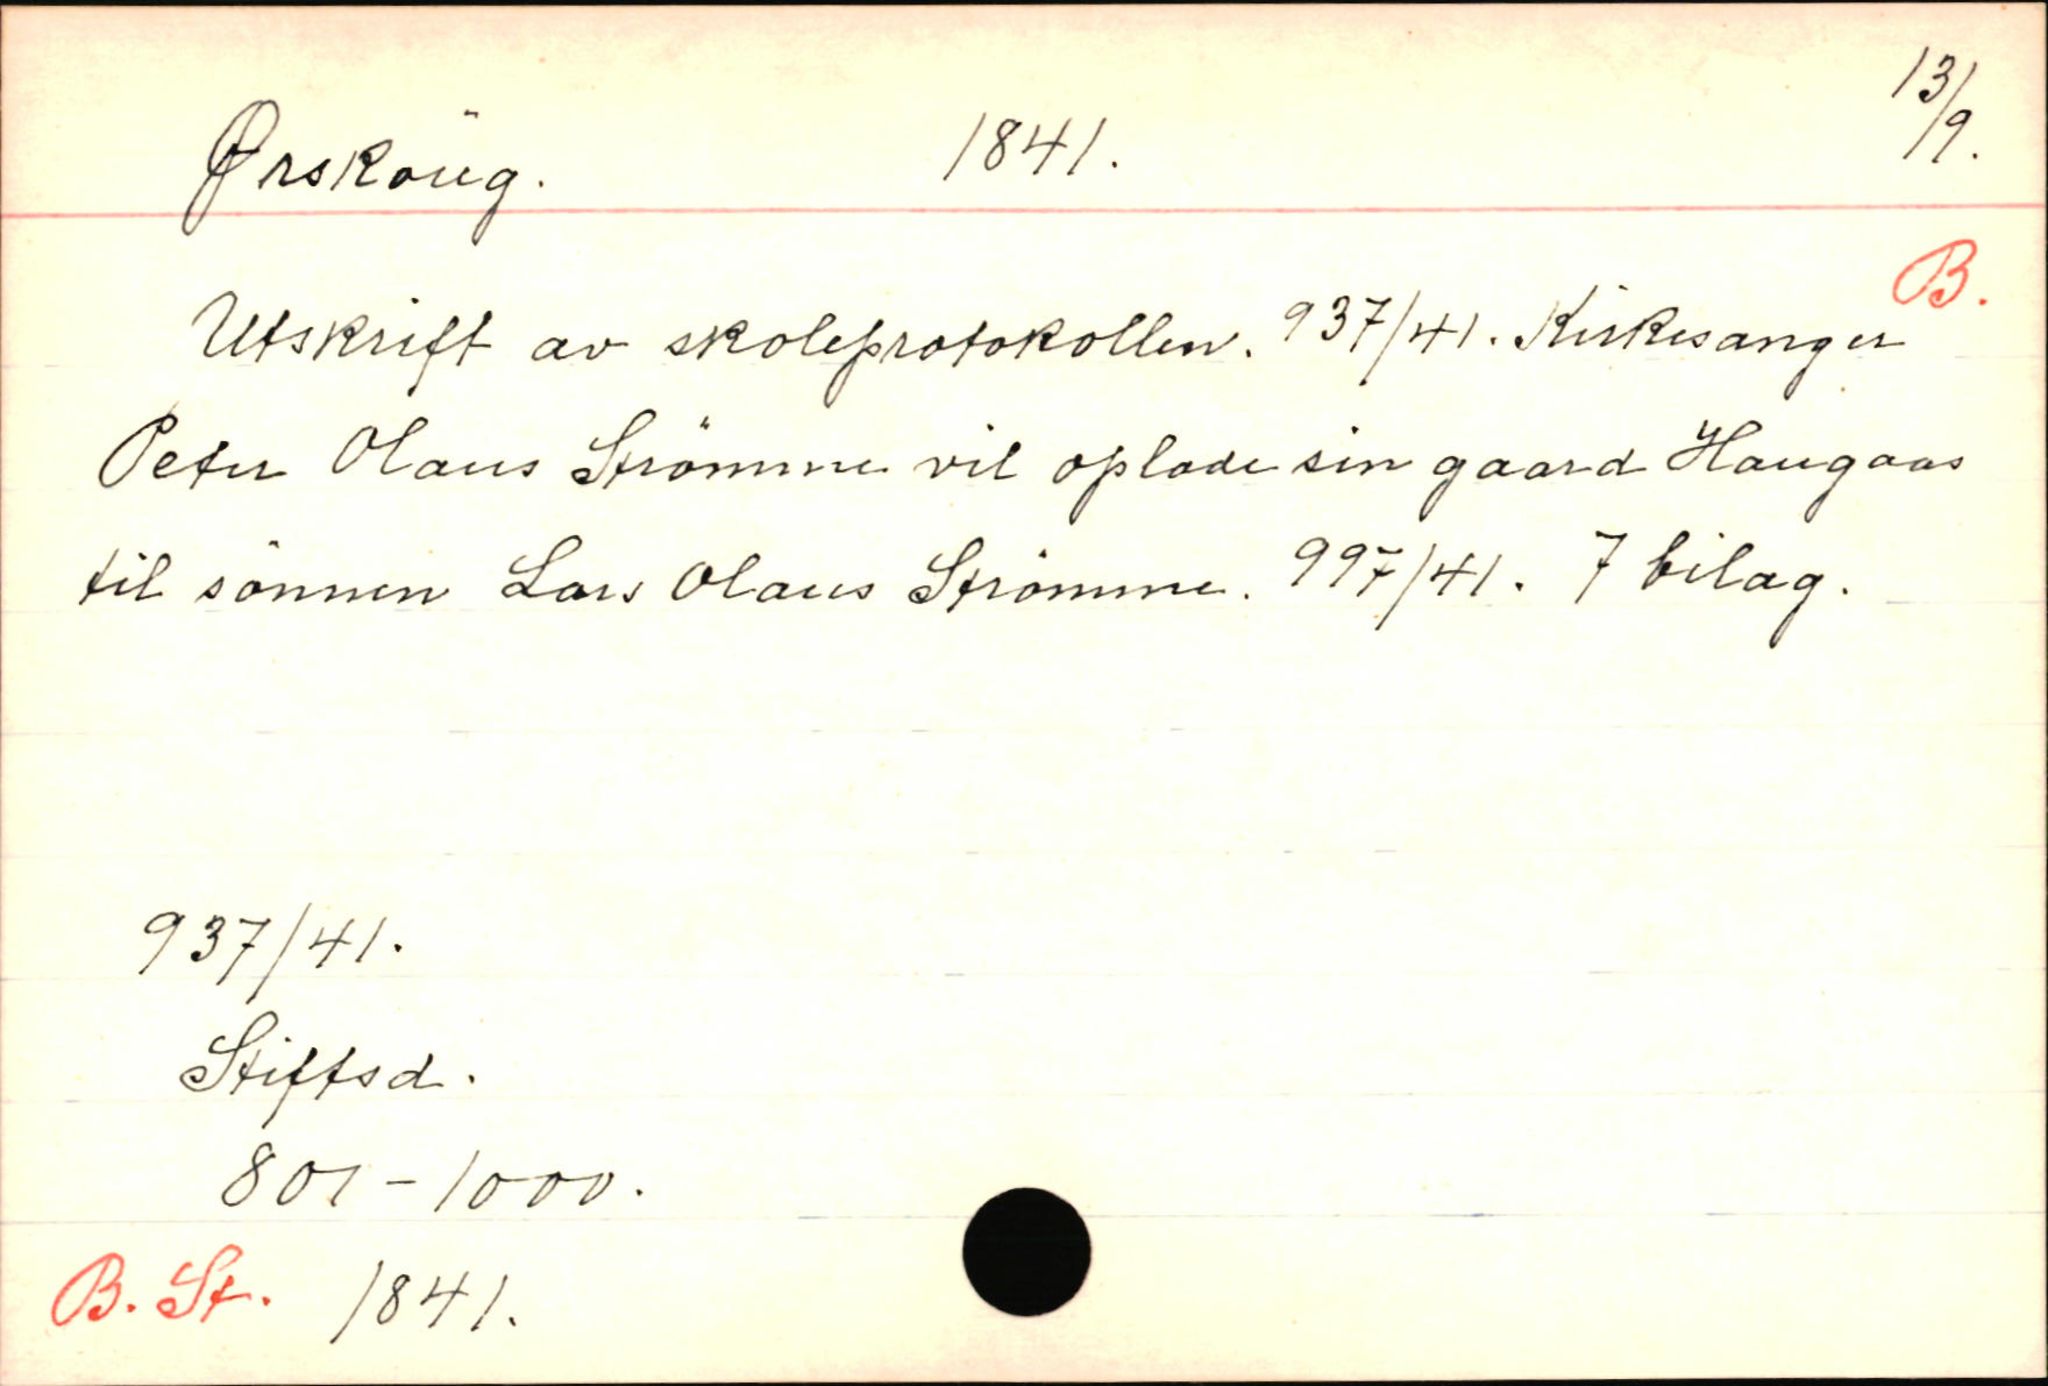 Ørskoüg. 1841. 13/9.
B.
Utskrift av skoleprotokollen. 937/41. Kirkesanger
Peter Olaus Strömme vil oplade sin gaard Haugaas
til sönnen Lars Olaus Strömme. 997/41. 7 bilag.
937/41.
Stiftsd.
801-1000.
B. St. 1841.